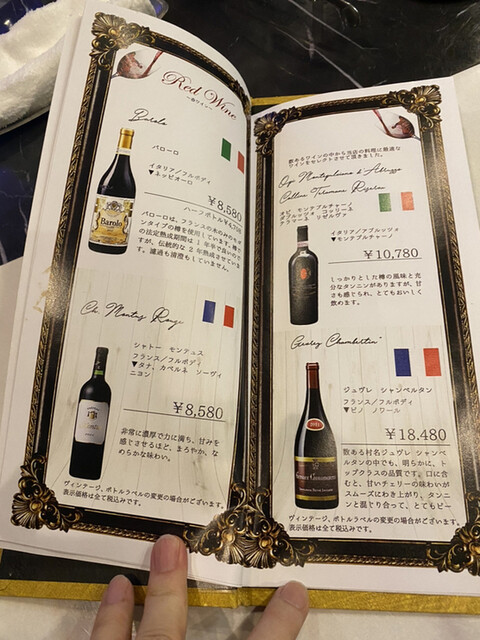 Red Wine
～赤ワイン～
Barolo
バローロ
イタリア/フルボディ
▼ネッビオーロ
¥8,580
ハーフボトル¥6,710
バローロは、フランスの木のみのボタ
ンタイプの樽を使用しています。樽で
の法定熟成期間は 1 年半で良いので
すが、伝統的な 2 年熟成させていま
す。濾過も清澄もしていません。
Barolo
Ch. Montus Rouge
シャトー モンテュス
フランス/フルボディ
▼タナ、カベルネ ソーヴィ
ニヨン
¥8,580
非常に濃厚で力に満ち、甘みを
感じさせるほど。まろやか、な
めらかな味わい。
ヴィンテージ、ボトルラベルの変更の場合がございます。
表示価格は全て税込みです。
数あるワインの中から当店の料理に最適な
ワインをセレクトさせて頂きました。
Opi Montepulciano d Abruzzo
Colline Teramane Riserva
オピ モンテプルチャーノ
ダブルッツォ コッリーネ
テラマーネ リゼルヴァ
イタリア/アブルッツォ
▼モンテプルチャーノ
¥10,780
しっかりとした樽の風味と充
分なタンニンがありますが、甘
さも感じられ、とてもおいしく
飲めます。
Gevrey Chambertin
ジュヴレ シャンベルタン
フランス/フルボディ
▼ピノ ノワール
¥18,480
数ある村名ジュヴレ シャンベ
ルタンの中でも、明らかに、ト
ップクラスの品質です。口に含
むと、甘いチェリーの味わいが
スムーズにわき上がり、タンニ
ンと混じり合って、とてもピー
Gevrey-Chambertin
ヴィンテージ、ボトルラベルの変更の場合がございます。
表示価格は全て税込みです。